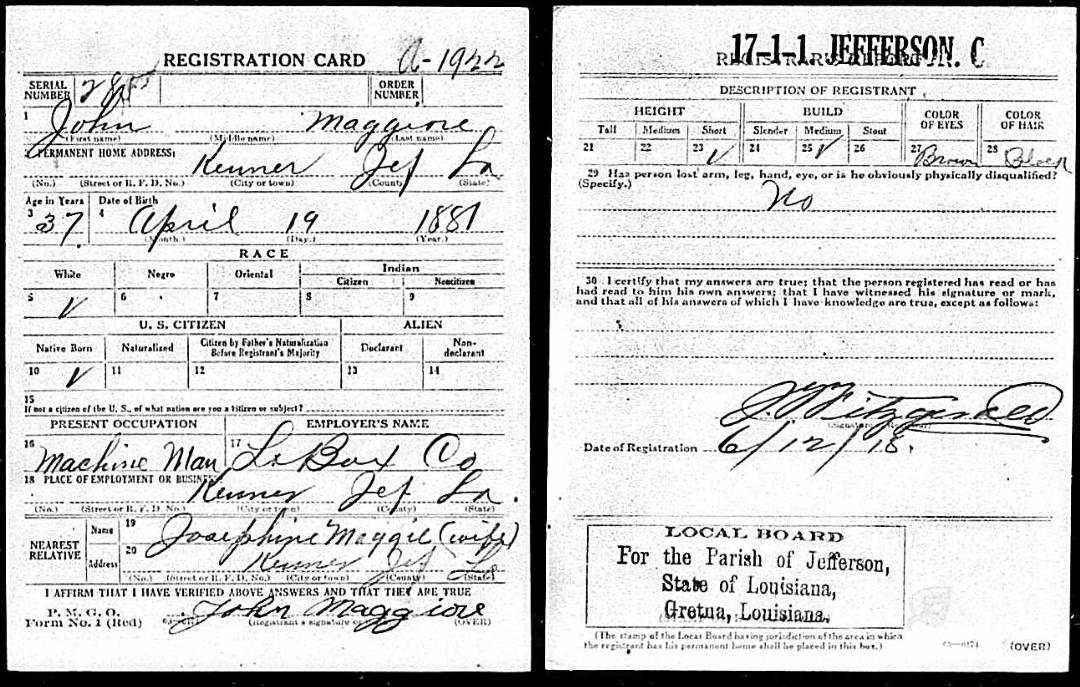 REGISTRATION CARD A-1922
SERIAL NUMBER ORDER NUMBER
1 John Maggiore
(First name) (Middle name) (Last name)
2 PERMANENT HOME ADDRESS:
Kenner Jef La
(No.) (Street or R. F. D. No.) (City or town) (County) (State)
Age in Years Date of Birth
3 37 4 April 19 1881
(Month.) (Day.) (Year.)
RACE
White Negro Oriental Indian
Citizen Noncitizen
5 ✓ 6 7 8 9
U. S. CITIZEN ALIEN
Native Born Naturalized Citizen by Father's Naturalization Before Registrant's Majority Declarant Non-declarant
10 ✓ 11 12 13 14
15
If not a citizen of the U. S., of what nation are you a citizen or subject?
PRESENT OCCUPATION EMPLOYER'S NAME
16 Machine Man 17 La Box Co
18 PLACE OF EMPLOYMENT OR BUSINESS:
Kenner Jef La.
(No.) (Street or R. F. D. No.) (City or town) (County) (State)
NEAREST RELATIVE Name 19 Josephine Maggie (wife)
Address 20 Kenner Jef La
(No.) (Street or R. F. D. No.) (City or town) (County) (State)
I AFFIRM THAT I HAVE VERIFIED ABOVE ANSWERS AND THAT THEY ARE TRUE
P. M. G. O.
Form No. 1 (Red) John Maggiore
(Registrant's signature or mark) (OVER)
17-1-1 JEFFERSON. C
DESCRIPTION OF REGISTRANT
HEIGHT BUILD COLOR OF EYES COLOR OF HAIR
Tall Medium Short Slender Medium Stout
21 22 23 ✓ 24 25 ✓ 26 27 Brown 28 Black
29 Has person lost arm, leg, hand, eye, or is he obviously physically disqualified?
(Specify.) No
30 I certify that my answers are true; that the person registered has read or has
had read to him his own answers; that I have witnessed his signature or mark,
and that all of his answers of which I have knowledge are true, except as follows:
Fitzgerald
(Signature of Registrar)
Date of Registration 6/12/18.
LOCAL BOARD
For the Parish of Jefferson,
State of Louisiana,
Gretna, Louisiana.
(The stamp of the Local Board having jurisdiction of the area in which
the registrant has his permanent home shall be placed in this box.)
(OVER)